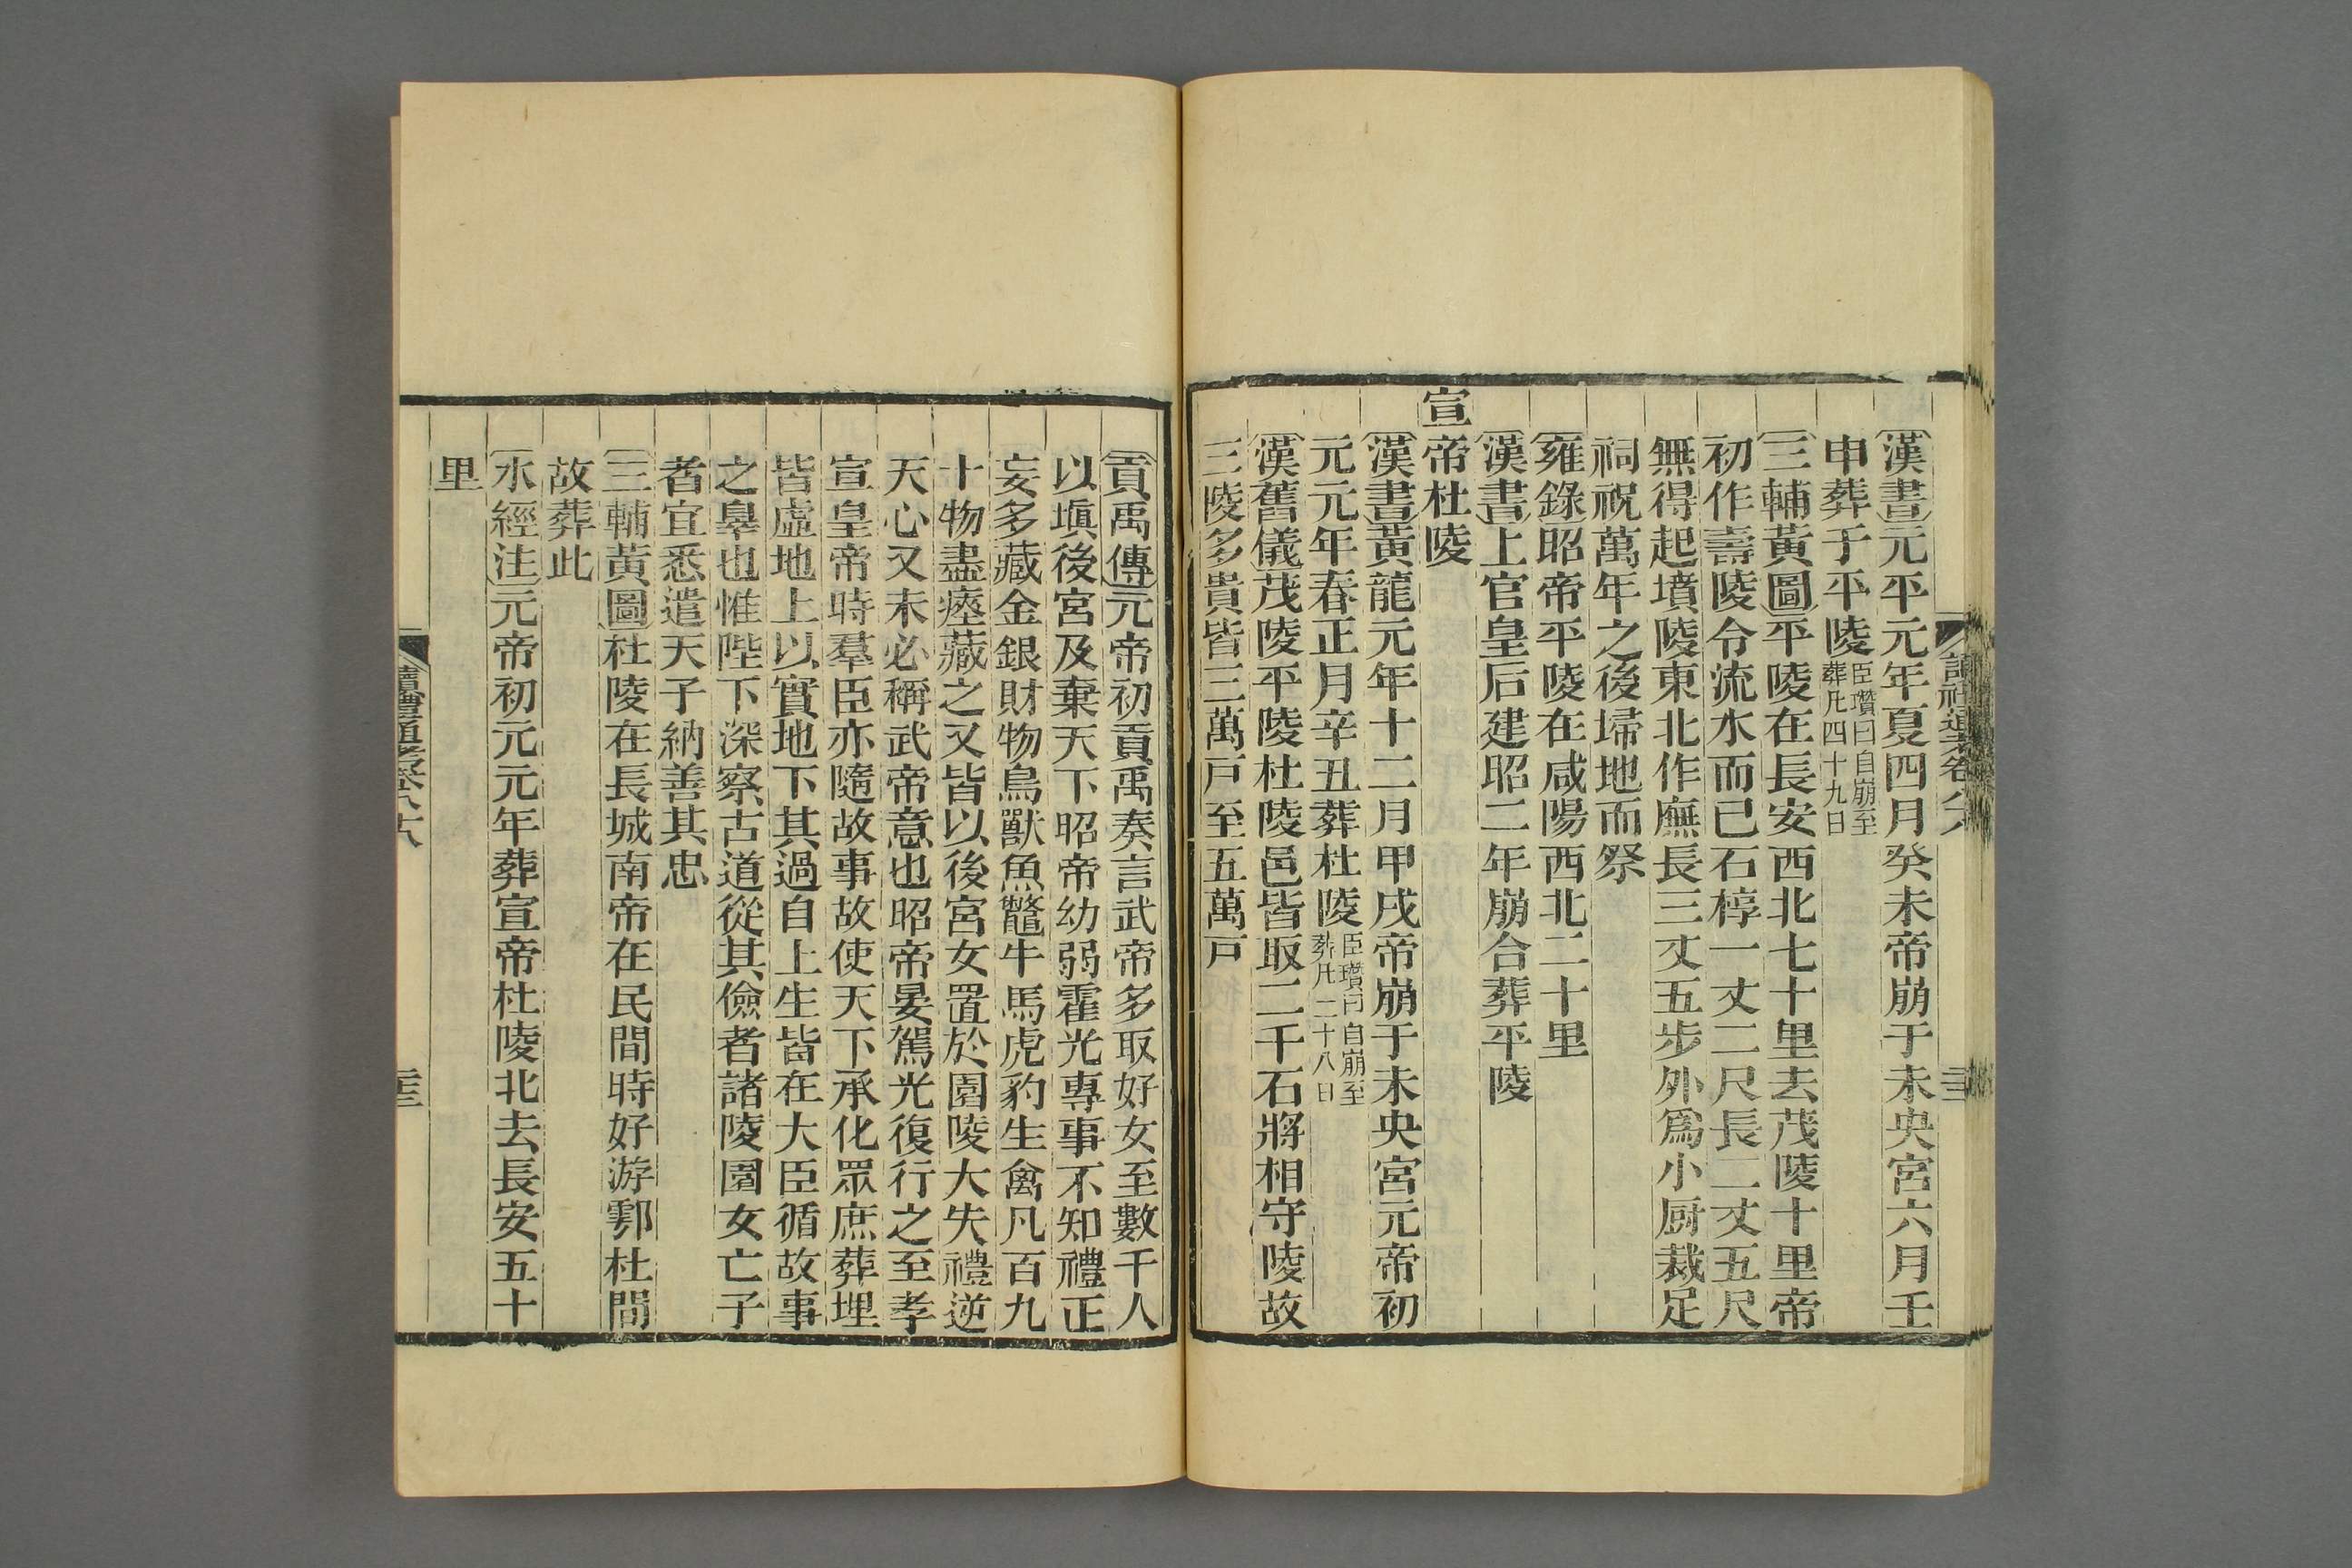 漢書元平元年夏四月癸未帝崩于未央宮六月壬
申葬于平陵臣瓚曰自崩至葬凡四十九日
三輔黃圖平陵在長安西北七十里去茂陵十里帝
初作壽陵令流水而已石椁一丈二尺長二丈五尺
無得起墳陵東北作廡長三丈五步外爲小厨裁足
祠祝萬年之後埽地而祭
雍錄昭帝平陵在咸陽西北二十里
漢書上官皇后建昭二年崩合葬平陵
宣帝杜陵
漢書黃龍元年十二月甲戌帝崩于未央宮元帝初
元元年春正月辛丑葬杜陵臣瓚曰自崩至葬凡二十八日
漢舊儀茂陵平陵杜陵邑皆取二千石將相守陵故
三陵多貴皆三萬戸至五萬戸
貢禹傳元帝初貢禹奏言武帝多取好女至數千人
以塡後宮及棄天下昭帝幼弱霍光專事不知禮正
妄多藏金銀財物鳥獸魚鼈牛馬虎豹生禽凡百九
十物盡瘞藏之又皆以後宮女置於園陵大失禮逆
天心又未必稱武帝意也昭帝晏駕光復行之至孝
宣皇帝時羣臣亦隨故事故使天下承化眾庶葬埋
皆虛地上以實地下其過自上生皆在大臣循故事
之辠也惟陛下深察古道從其儉者諸陵園女亡子
者宜悉遣天子納善其忠
三輔黃圖杜陵在長城南帝在民間時好游鄠杜間
故葬此
水經注元帝初元元年葬宣帝杜陵北去長安五十
里
讀禮通考卷八十八